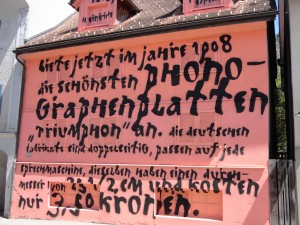 biete jetzt im jahre 1908
die schönsten phono-
graphenplatten
„triumphon“ an. die deutschen
fabrikate sind doppelseitig, passen auf jede
sprechmaschine, dieselben haben einen durch-
messer von 25 1/2 cm und kosten
nur 3,50 kronen.